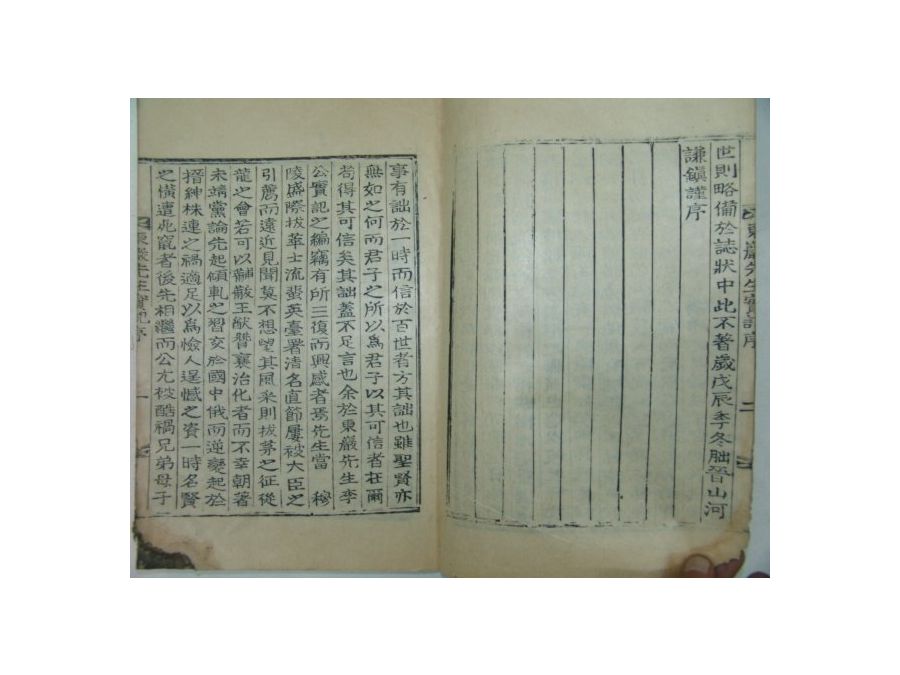 東巖先生實記序
二
世則略備於誌狀中此不著歲戊辰季冬朏晉山河
謙鎭謹序
事有詘於一時而信於百世者方其詘也雖聖賢亦
無如之何而君子之所以爲君子以其可信者在爾
苟得其可信矣其詘蓋不足言也余於東巖先生李
公實記之編竊有所三復而興感者焉先生當 穆
陵盛際拔萃士流蜚英臺署淸名直節屢被大臣之
引薦而遠近見聞莫不想望其風采則拔茅之征從
龍之會若可以黼黻王猷贊襄治化者而不幸朝著
未靖黨論先起傾軋之習交於國中俄而逆變起於
搢紳株連之禍適足以爲憸人逞憾之資一時名賢
之橫遭兆竄者後先相繼而公尤被酷禍兄弟母子
東巖先生實記序
一